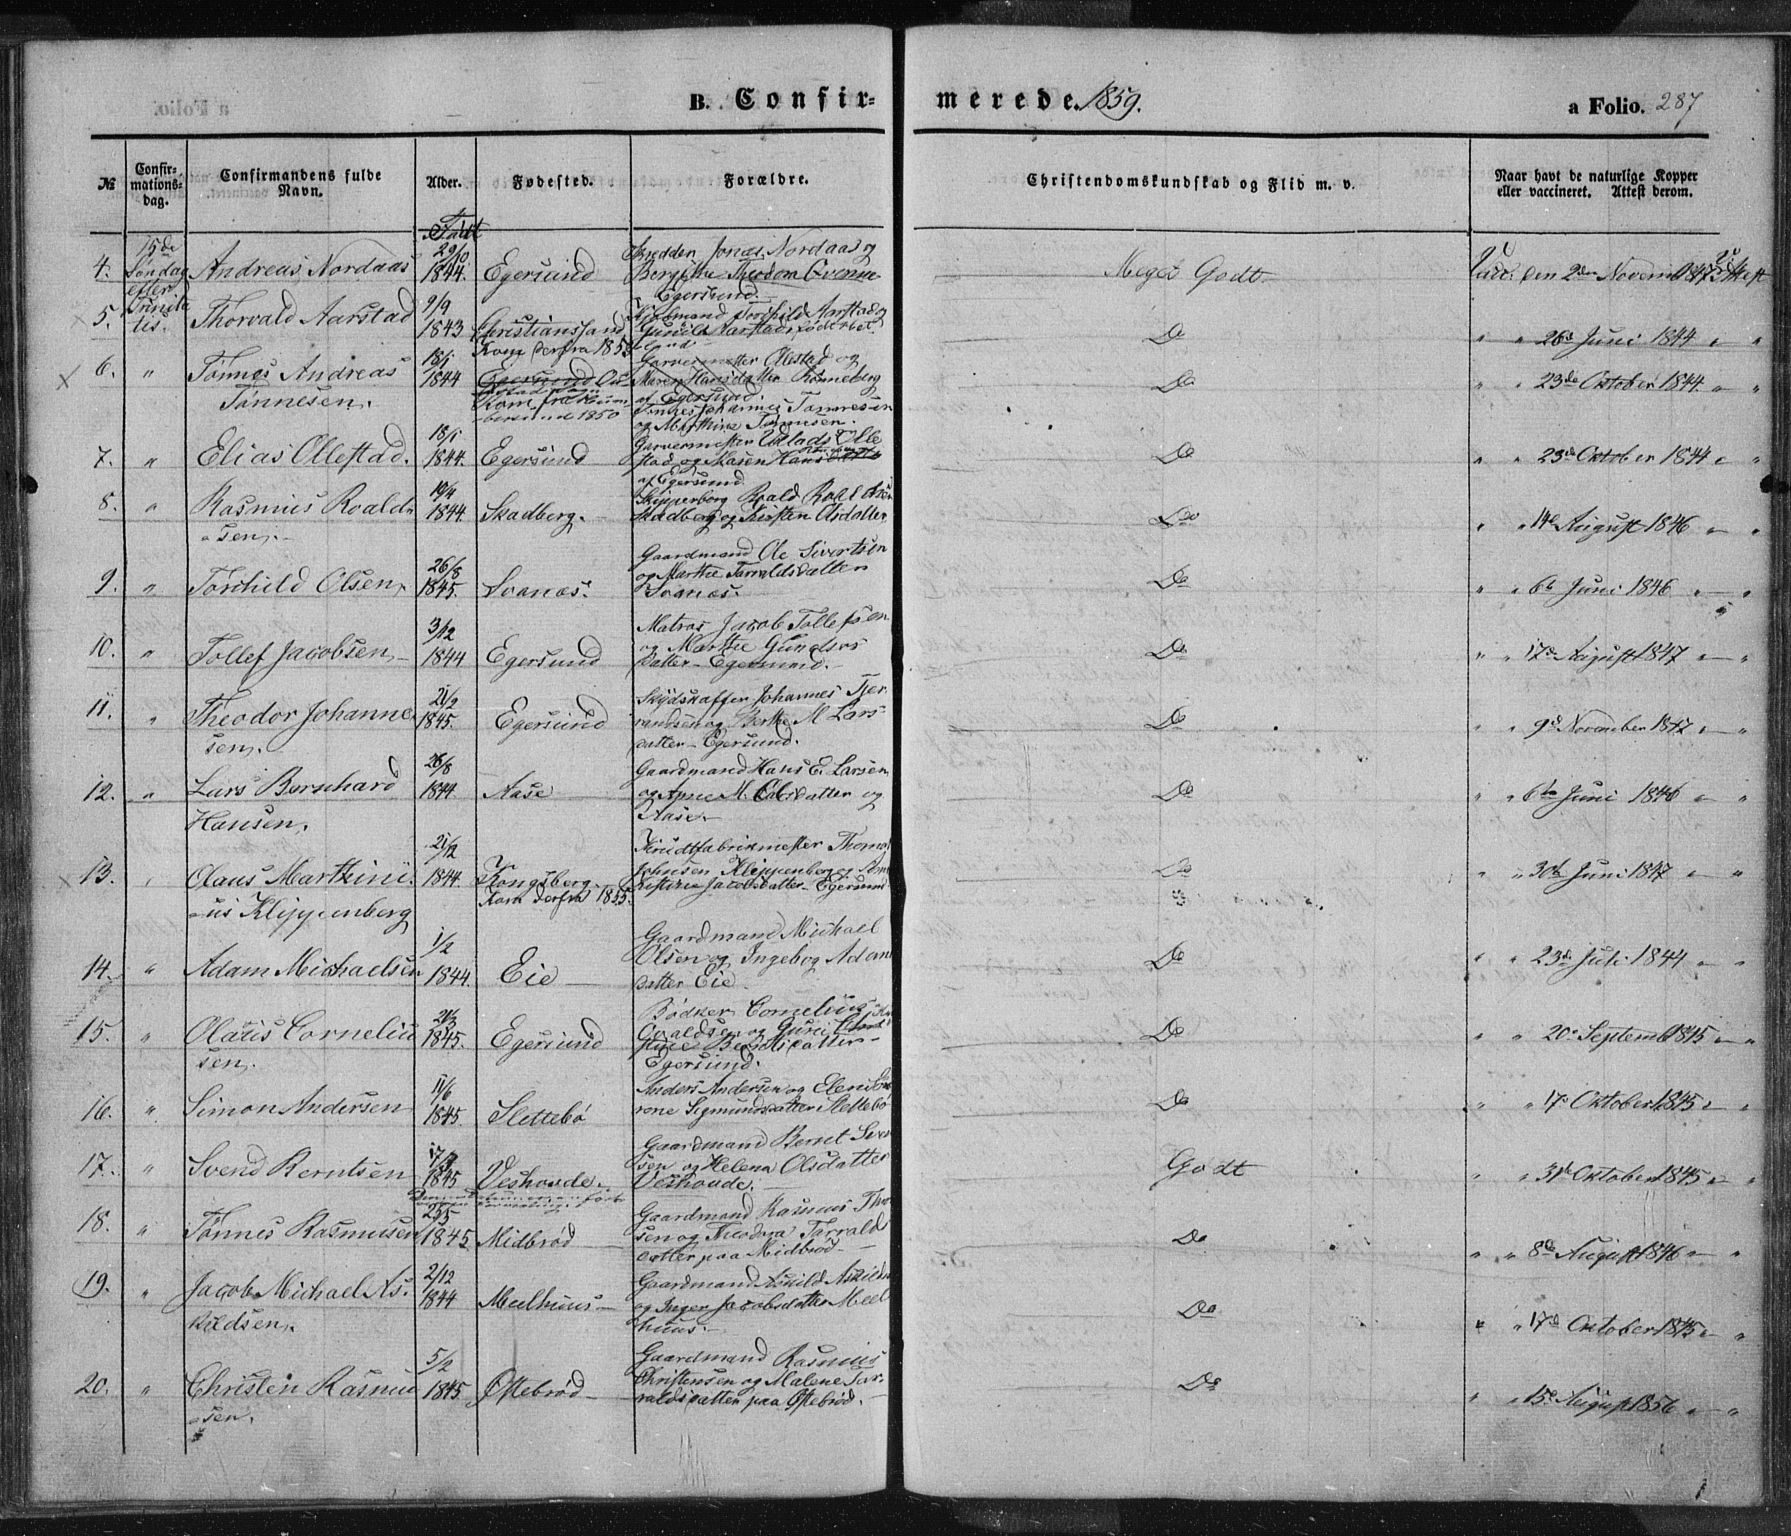 B. Confir- merede. 1859. a Folio. 287
№ Confir-mations-dag. Confirmandens fulde Navn. Alder. Fødested. Forældre. Christendomskundskab og Flid m. v. Naar havt de naturlige Kopper eller vaccineret. Attest derom.
Født
15de Søndag efter Trinitatis.
4. Andreas Nordaas 29/10 1844. Egersund
Jonas Nordaas og
Egersund
Meget Godt.
Vacc. den 2den Novemb
5. Thorvald Aarstad 9/9 1843 Christianssand
Kom derfra
Torchild Aarstad og
Gunild Aarstad
Do
" " 26d Juni 1844 " "
6. " Tønnes Andreas
Tønnesen. 18/1 1844 Egersund
Kom fra
1850
Garvermester Ollestad og
Maren Hansdatter Rønneberg
af Egersund.
Tønnes Johannes Tønnesen
og Marthine Tønnesen.
Do
" " 23de Oktober 1844. " "
7. " Elias Ollestad. 18/1 1844. Egersund
Garvermester Olle
stad og Maren Hans
af Egersund
Do
" " 23d Oktober 1844 " "
8. " Rasmus Roald
sen. 19/4 1844. Skadberg.
Roald
Skadberg og Kirsten Olsdatter
Do
" " 14d August 1846 " "
9. " Torchild Olsen 26/8 1845. Svanæs.
Gaardmand Ole Sivertsen
og Marthe Tarraldsdatter
Svanæs.
Do
" " 6te Juni 1846 " "
10. " Tollef Jacobsen 3/12 1844 Egersund
Matros Jacob Tollefsen
og Marthe Gunders
datter Egersund.
Do
" " 17d August 1847 " "
11. " Theodor Johanne
sen. 21/2 1845. Egersund
Skydskaffer Johannes Tjer
randsen og Berthe M. Lars
datter Egersund.
Do
" " 9d November 1847 " "
12. " Lars Bernhard
Hansen. 26/8 1844 Aase
Gaardmand Hans E. Larsen
og Anne M. Olsdatter
Aase.
Do
" " 6te Juni 1846 " "
13. " Olaus Marthini
us Klippenberg 21/2 1844. Kongsberg
Kom derfra 1855.
Thomas
Johnsen Klippenberg og
Jacobsdatter Egersund
Do
" " 30te Juni 1847 " "
14. " Adam Michaelsen 1/2 1844. Eie
Gaardmand Michael
Olsen og Ingebog Adams
datter Eie
Do
" " 23de Juli 1844 " "
15. " Olaus Corneliu
sen. 21/3 1845. Egersund
Bødker Cornelius
Osvaldsen og Guri
datter
Egersund.
Do
" " 20 Septemb 1845 " "
16. " Simon Andersen 11/6 1845 Slettebø
Anders Andersen og Eleni
Sigmundsdatter Slettebø
Do
" " 17 Oktober 1845 " "
17. " Svend Berntsen 17/3 1845 Veshovde.
Gaardmand Bernt Sven
sen og Helena Olsdatter
Veshovde.
Godt
" " 31d Oktober 1845 " "
18. " Tønnes Rasmusen 25/5 1845 Midbrød
Gaardmand Rasmus
sen og Theodora Tarralds
datter paa Midbrød
Do
" " 8de August 1846 " "
19. " Jacob Michael As-
kildsen. 2/12 1844 Meelhuus
Gaardmand Askild Askilds
og Inger Jacobsdatter Meel
huus.
Do
" " 17d Oktober 1845 " "
20. " Christen Rasmu
sen. 5/2 1845. Øftebrød
Gaardmand Rasmus
Christensen og Malene Tar-
raldsdatter paa Øftebrød.
Do
" " 15d August 1856 " "